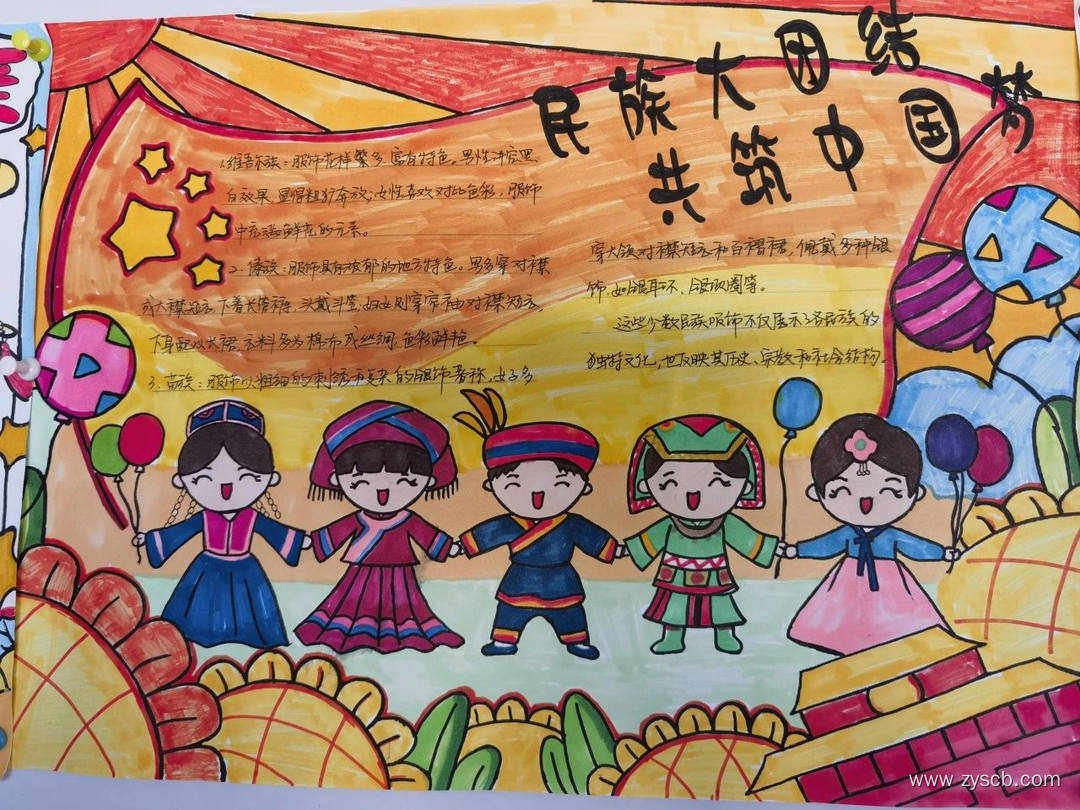 民族大团结
共筑中国梦
1.维吾尔族：服饰花样繁多，富有特色。男性讲究黑
白效果，显得粗犷奔放；女性喜欢对比色彩，服饰
中充满鲜花的元素。
2、傣族：服饰具有浓郁的地方特色。男多穿对襟
或大襟短衣，下着长管裤，头戴斗笠，妇女则穿窄袖对襟短衣，
下身配以长裙，衣料多为棉布或丝绸，色彩鲜艳。
3、苗族：服饰以粗细的刺绣和复杂的银饰著称，女子多
穿大领对襟短衣和百褶裙，佩戴多种银
饰，如银耳环、银项圈等。
这些少数民族服饰不仅展示了各民族的
独特文化，也反映其历史、宗教和社会结构。
www.zyscb.com